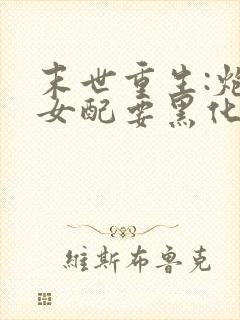 末世重生:炮
女配要黑化
維斯布魯克